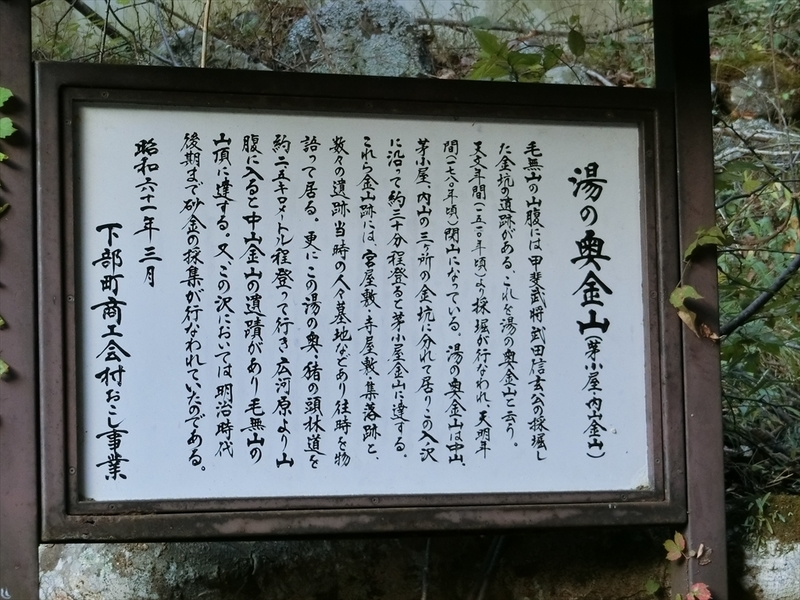 湯の奥金山(茅小屋・内山金山)
毛無山の山腹には甲斐武将武田信玄公の採堀し
た金坑の遺跡がある。これを湯の奥金山と云う。
天文年間(一五一〇年頃)より採堀が行なわれ、天明年
間(一七八〇年頃)閉山になっている。湯の奥金山は中山、
茅小屋、内山の三ヶ所の金坑に分れて居りこの入ノ沢
に沿って約三十分程登ると茅小屋金山に達する。
これら金山跡には、宮屋敷・寺屋敷・集落跡と、
数々の遺跡当時の人々墓地などあり往時を物
語って居る。更にこの湯の奥、猪の頭林道を
約二・五キロメートル程登って行き、広河原より山
腹に入ると中山金山の遺蹟があり毛無山の
山頂に達する。又、この沢においては明治時代
後期まで砂金の採集が行なわれていたのである。
昭和六十一年三月
下部町商工会村おこし事業